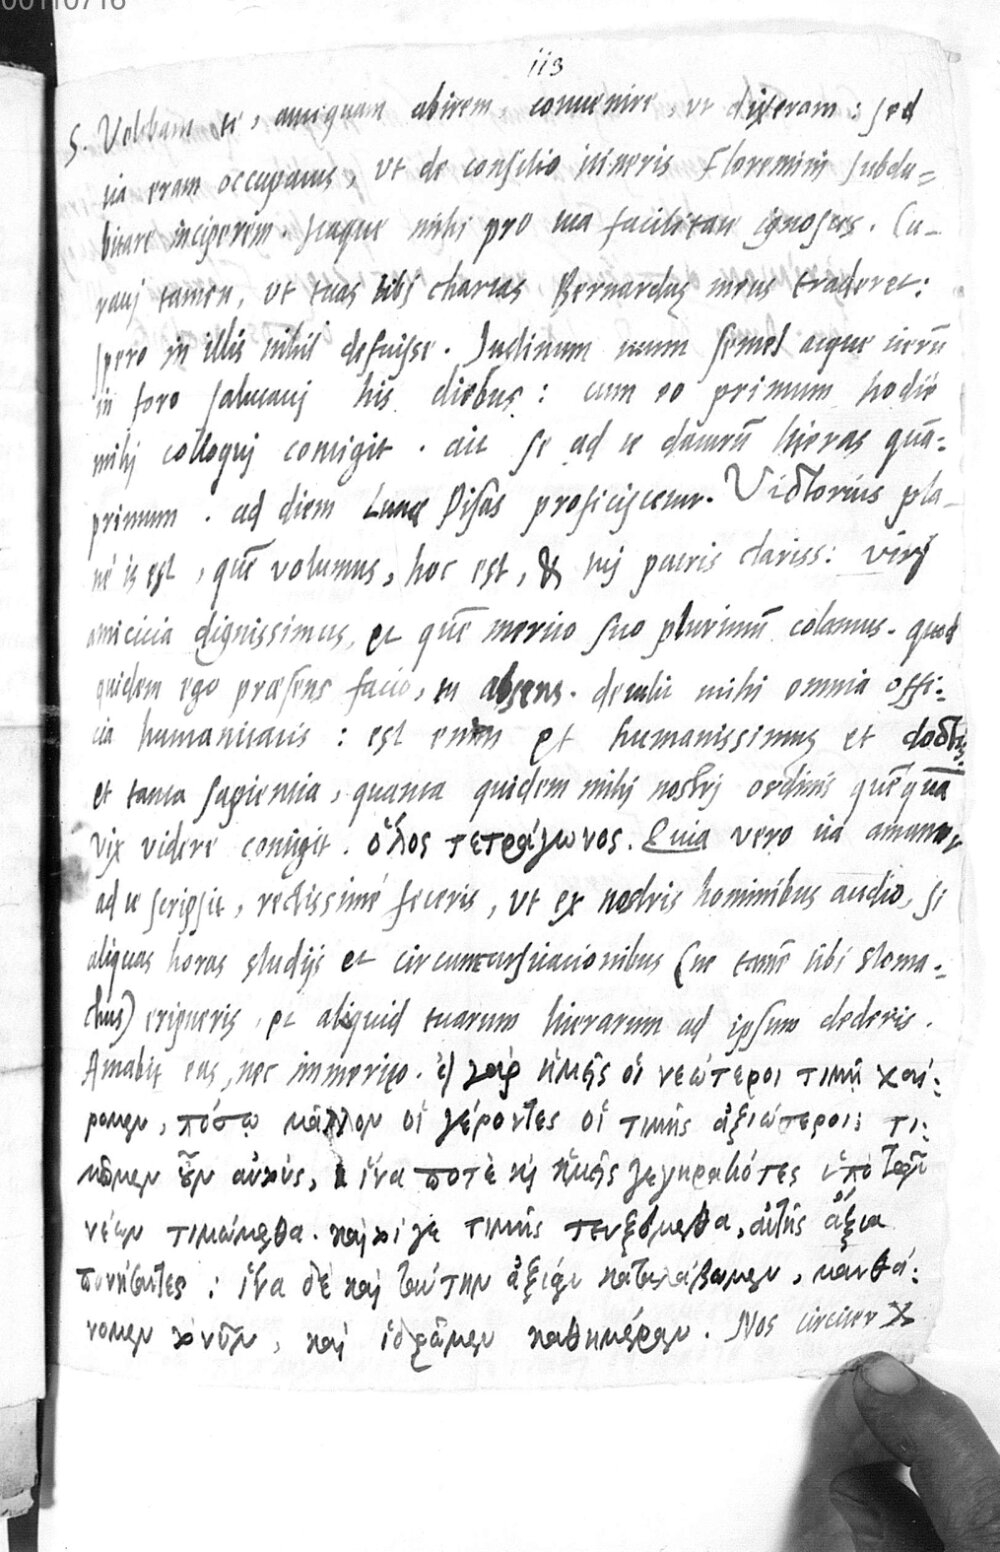 00110716
113
S. Volebam te, antequam abirem, conuenire, vt dixeram: sed
ita eram occupatus, vt de consilio itineris Florentini subdu=
bitare inciperem. Itaque mihi pro tua facilitate ignosces. Cu-
rauj tamen, vt tuas tibj chartas Bernardus meus traderet:
spero in illis nihil defuisse. Judinum unum semel atque iterū
in foro salutauj his diebus: cum eo primum hodiè
mihj colloquj contigit. ait se ad te daturū literas quā=
primum. ad diem Lunae Pisas proficiscetur. Victorius pla-
nè is est, quē volumus, hoc est, & tuj patris clariss: virj
amicicia dignissimus, et quē merito suo plurimū colamus. quod
quidem ego praesens facio, tu absens. detulit mihi omnia offi=
cia humanitatis: est enim et humanissimus et doctus
et tanta sapientia, quanta quidem mihj nostrj ordinis quēquā
vix videre contigit. ὅλος τετράγωνος. Quia vero ita amanter
ad te scripsit, rectissimè feceris, vt ex nostris hominibus audio, si
aliquas horas studijs et circumcursitacionibus (ne tamē tibi stoma=
chus) eripueris, et aliquid tuarum literarum ad ipsum dederis.
Amabit eas, nec immerito. εἰ γὰρ ἡμεῖς οἱ νεώτεροι τιμῇ χαί=
ρομεν, πόσῳ μᾶλλον οἱ γέροντες οἱ τιμῆς ἀξιώτεροι; τι=
μῶμεν οὖν αὐτούς, ἵνα ποτὲ καὶ ἡμεῖς γεγηρακότες ὑπὸ τῶν
νέων τιμώμεθα. καίτοι γε τιμῆς τευξόμεθα, αὐτῆς ἄξια
πονήσαντες: ἵνα δὲ καὶ ταύτην ἀξίαν καταλάβωμεν, μανθά=
νομεν νῦν, καὶ ἱδρῶμεν καθημέραν. Nos circiter X